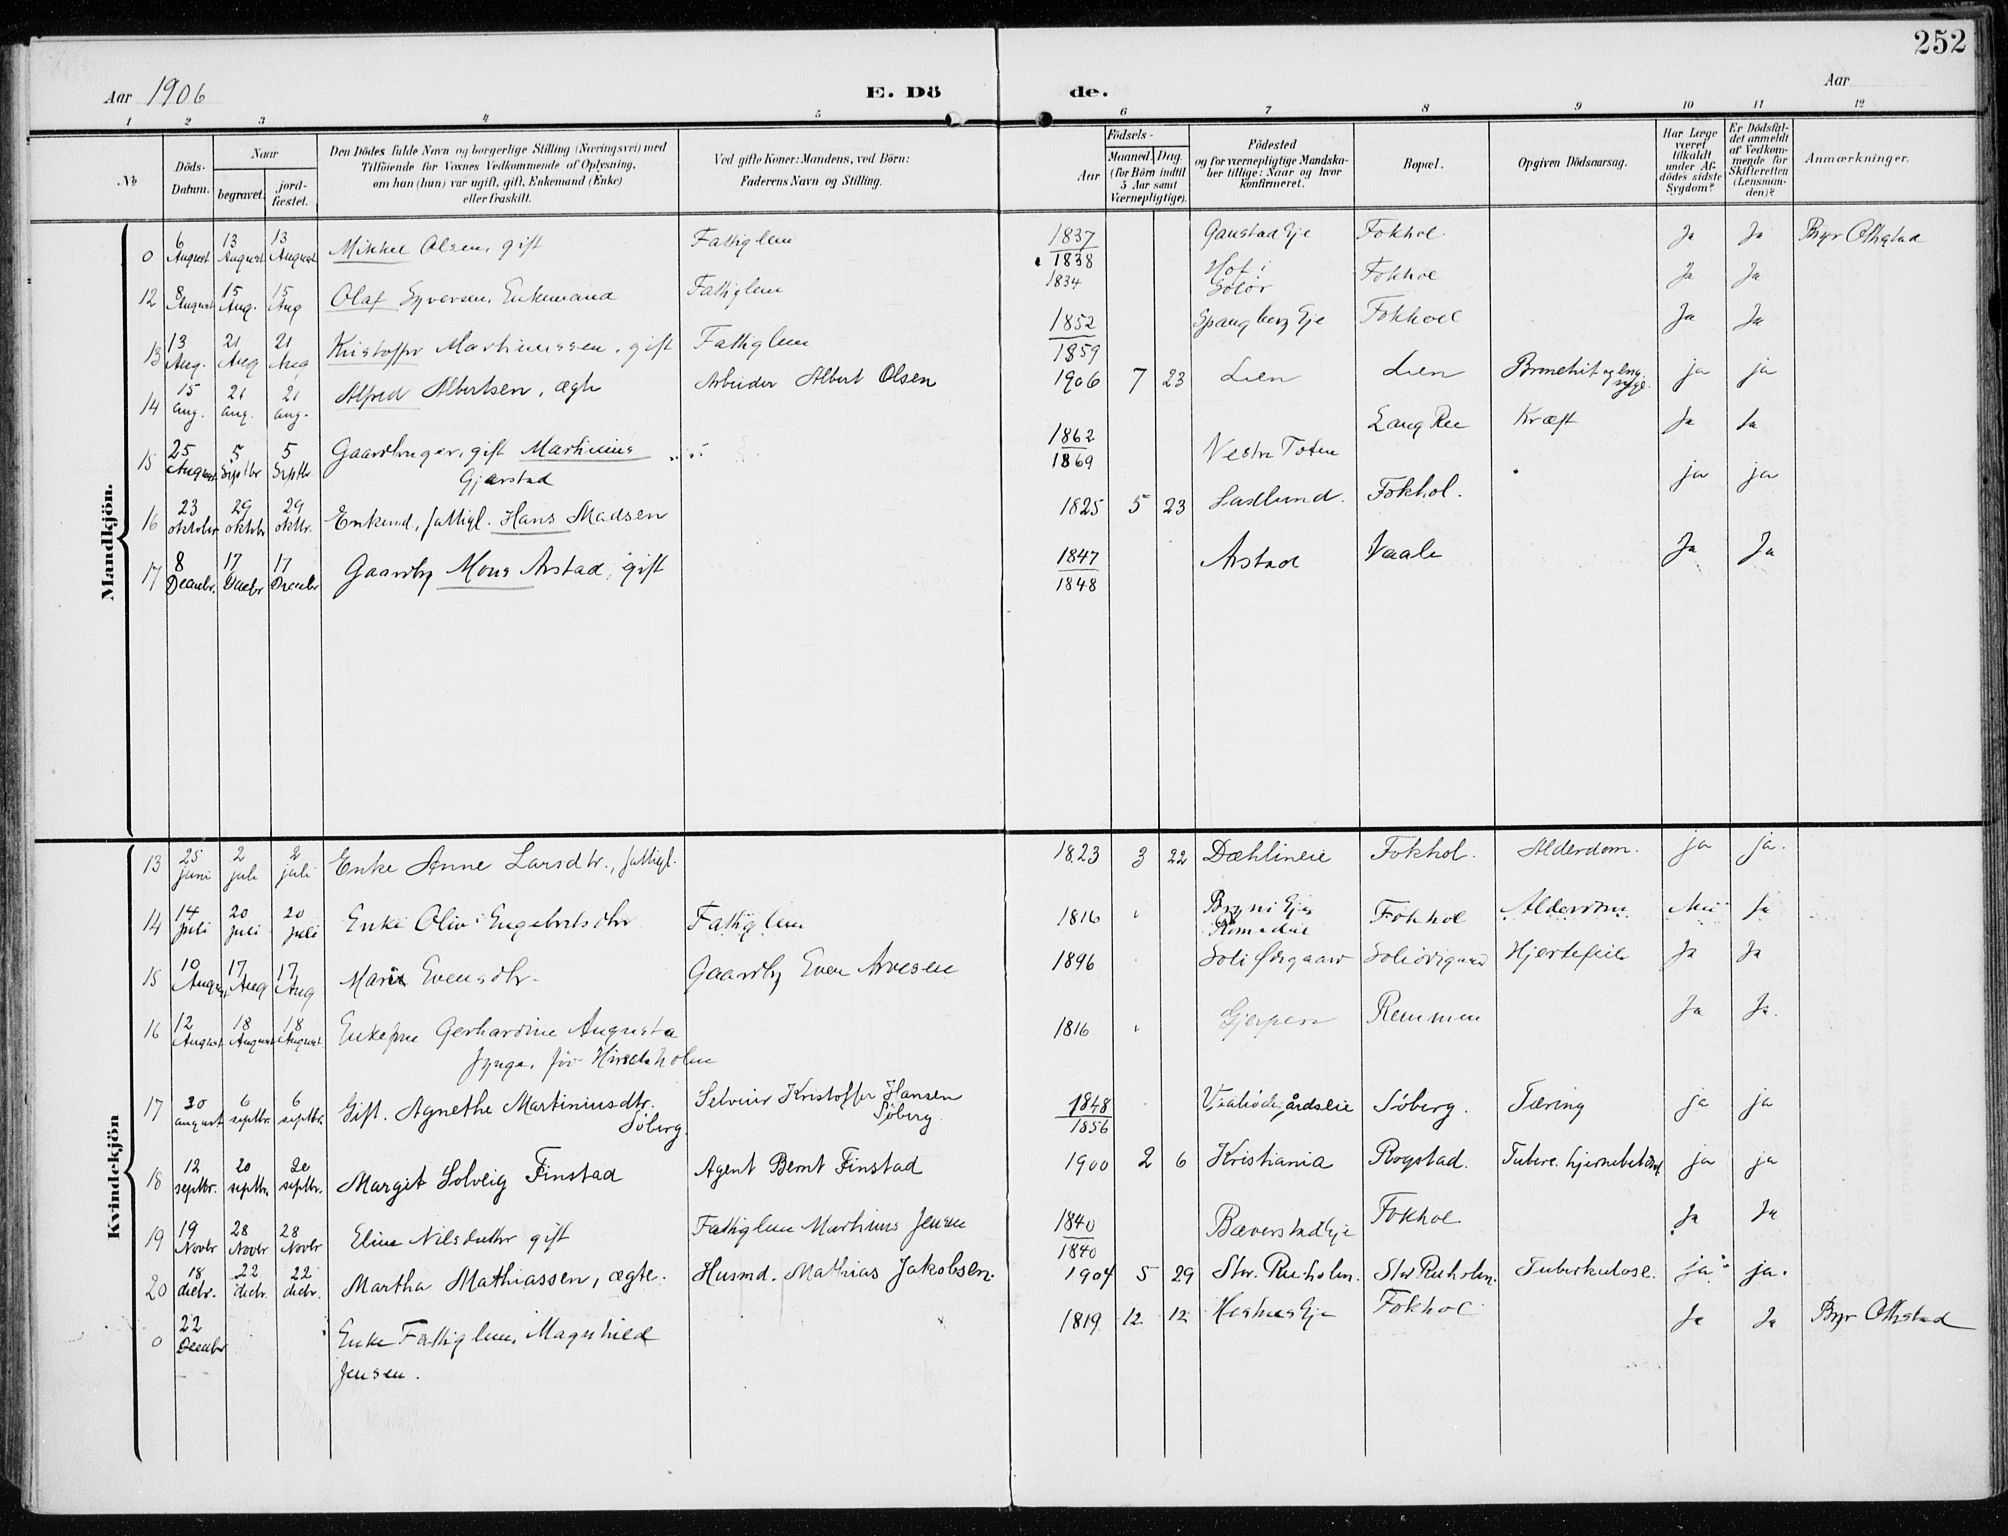 252
Aar 1906
E. Dö de.
Aar
1 2 3 4 5 6 7 8 9 10 11 12
№
Döds-Datum.
Naar
begravet.
jord-fæstet.
Den Dödes fulde Navn og borgerlige Stilling (Næringsvei) med
Tilföiende for Voxnes Vedkommende af Oplysning,
om han (hun) var ugift, gift, Enkemand (Enke)
eller fraskilt.
Ved gifte Koner: Mandens, ved Börn:
Faderens Navn og Stilling.
Födsels-
Aar
Maaned. Dag.
(for Börn indtil
5 Aar samt
Værnepligtige).
Födested
og for værnepligtige Mandska-
ber tillige: Naar og hvor
konfirmeret.
Bopæl.
Opgiven Dödsaarsag.
Har Læge
været
tilkaldt
under Af-
dödes sidste
Sygdom?
Er Dödsfal-
det anmeldt
af Vedkom-
mende for
Skifteretten
(Lensman-
den)?
Anmærkninger.
Mandkjön.
0 6 August 13 August 13 August Mikkel Olsen, gift Fattiglem 1837 1838 Gaustad Eje Fokhol Ja Ja Byr Othstad
12 8 August 15 Aug. 15 Aug Olaf Syversen, Enkemand Fattiglem 1834 Hof i Solør Fokhol Ja Ja
13 13 Aug. 21 Aug 21 Aug Kristoffer Martinussen, gift Fattiglem 1852 1859 Spangberg Eje Fokhol Ja Ja
14 15 aug. 21 aug. 21 aug. Alfred Albertsen, ægte Arbeider Albert Olsen 1906 7 23 Lien Lien Bronchit og eng. syge. ja ja
15 25 August 5 Septbr 5 Septbr Gaardbruger, gift Martinius
Gjørstad 1862 1869 Vestre Toten Lang Ree Kræft Ja Ja
16 23 oktober 29 oktobr 29 oktbr. Enkemd, fattigl. Hans Madsen 1825 5 23 Saxlund. Fokhol. ja ja
17 8 Decembr. 17 Decbr 17 Decembr Gaardbr Mons Arstad, gift 1847 1848 Arstad Vaale Ja Ja
Kvindekjön
13 25 juni 2 juli 2 juli Enke Anne Larsdtr., fattigl. 1823 3 22 Dæhlineie Fokhol. Alderdom. ja ja.
14 14 Juli 20 juli 20 juli Enke Olivi Engebretsdtr Fattiglem 1816 Bryni Eje Romedal Fokhol Alderdom. Nei Ja
15 10 August 17 Aug 17 Aug Marie Evensdtr. Gaardbr Even Arvesen 1896 Soli Ødegaard Soliødegaard Hjertefeil Ja Ja
16 12 August 18 August 18 August Enkefrue Gerhardine Augusta
Jynge, før Hirschholm 1816 Gjerpen Remmen Ja Ja.
17 30 august 6 septbr. 6 septbr. Gift. Agnethe Martiniusdtr.
Søberg. Selveier Kristoffer Hansen
Søberg 1848 1856 Søberg. Tæring ja ja
18 12 septbr. 20 septbr. 20 septbr. Margit Solveig Finstad Agent Bernt Finstad 1900 2 6 Kristiania Rogstad. Tuberc. hjernebetænd. ja ja
19 19 Novbr 28 Novbr 28 Novbr Eline Nilsdatter gift Fattiglem Martinus Jensen 1840 1840 Bæverstad Eje Fokhol Ja Ja
20 18 decbr. 22 decbr. 22 decbr. Martha Mathiassen, ægte. Husmd. Mathias Jakobsen. 1904 5 29 Stor. Ruholm. Stor Ruholm. Tuberkulose. ja ja.
0 22 December Enke Fattiglem, Magnhild
Jensen. 1819 12 12 Hesnes Eje Fokhol Ja Ja Byr Othstad